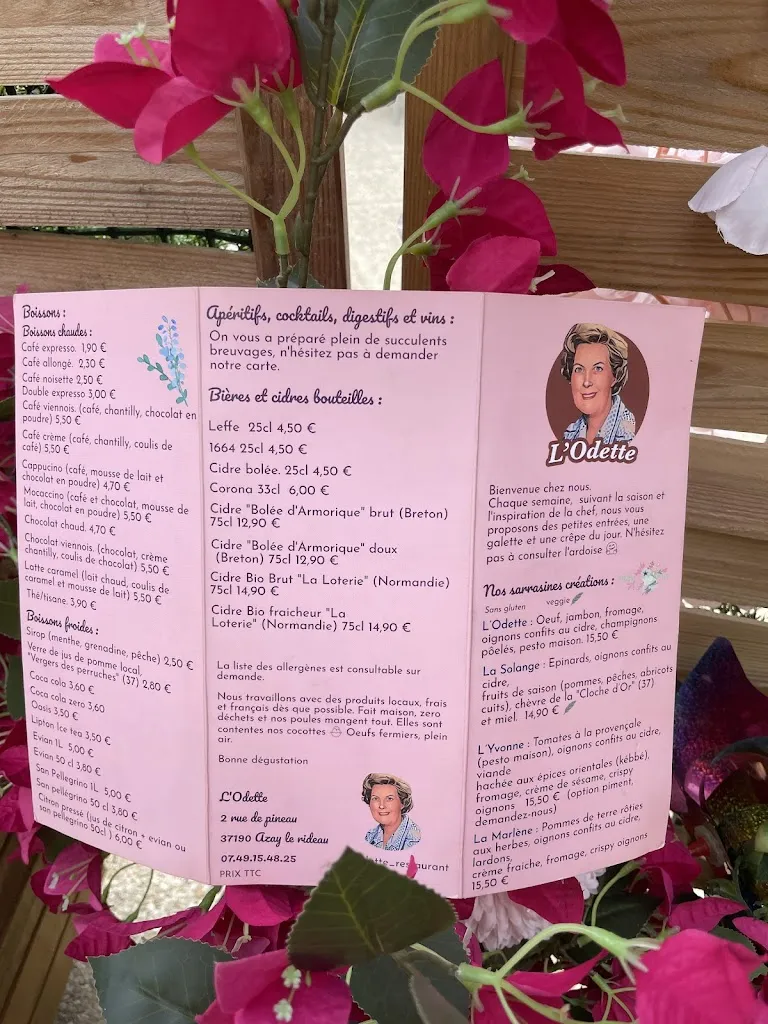 Boissons :
Boissons chaudes :
Café expresso. 1,90 €
Café allongé. 2,30 €
Café noisette 2,50 €
Double expresso 3,00 €
Café viennois. (café, chantilly, chocolat en
poudre) 5,50 €
Café crème (café, chantilly, coulis de
café) 5,50 €
Cappucino (café, mousse de lait et
chocolat en poudre) 4,70 €
Mocaccino (café et chocolat, mousse de
lait, chocolat en poudre) 5,50 €
Chocolat chaud. 4,70 €
Chocolat viennois. (chocolat, crème
chantilly, coulis de chocolat) 5,50 €
Latte caramel (lait chaud, coulis de
caramel et mousse de lait) 5,50 €
Thé/tisane. 3,90 €
Boissons froides :
Sirop (menthe, grenadine, pêche) 2,50 €
Verre de jus de pomme local,
"Vergers des perruches" (37) 2,80 €
Coca cola 3,60 €
Coca cola zero 3,60
Oasis 3,50 €
Lipton Ice tea 3,50 €
Evian 1L 5,00 €
Evian 50 cl 3,80 €
San Pellegrino 1L 5,00 €
San pellégrino 50 cl 3,80 €
Citron pressé (jus de citron + evian ou
san pellegrino 50cl ) 6,00 €
Apéritifs, cocktails, digestifs et vins :
On vous a préparé plein de succulents
breuvages, n'hésitez pas à demander
notre carte.
Bières et cidres bouteilles :
Leffe 25cl 4,50 €
1664 25cl 4,50 €
Cidre bolée. 25cl 4,50 €
Corona 33cl 6,00 €
Cidre "Bolée d'Armorique" brut (Breton)
75cl 12,90 €
Cidre "Bolée d'Armorique" doux
(Breton) 75cl 12,90 €
Cidre Bio Brut "La Loterie" (Normandie)
75cl 14,90 €
Cidre Bio fraicheur "La
Loterie" (Normandie) 75cl 14,90 €
La liste des allergènes est consultable sur
demande.
Nous travaillons avec des produits locaux, frais
et français dès que possible. Fait maison, zero
déchets et nos poules mangent tout. Elles sont
contentes nos cocottes Oeufs fermiers, plein
air.
Bonne dégustation
L'Odette
2 rue de pineau
37190 Azay le rideau
07.49.15.48.25
PRIX TTC
L'Odette
Bienvenue chez nous.
Chaque semaine, suivant la saison et
l'inspiration de la chef, nous vous
proposons des petites entrées, une
galette et une crêpe du jour. N'hésitez
pas à consulter l'ardoise
Nos sarrasines créations :
Sans gluten veggie
L'Odette : Oeuf, jambon, fromage,
oignons confits au cidre, champignons
pôelés, pesto maison. 15,50 €
La Solange : Epinards, oignons confits au
cidre,
fruits de saison (pommes, pêches, abricots
cuits), chèvre de la "Cloche d'Or" (37)
et miel. 14,90 €
L'Yvonne : Tomates à la provençale
(pesto maison), oignons confits au cidre,
viande
hachée aux épices orientales (kébbé),
fromage, crème de sésame, crispy
oignons 15,50 € (option piment,
demandez-nous)
La Marlène : Pommes de terre rôties
aux herbes, oignons confits au cidre,
lardons,
crème fraiche, fromage, crispy oignons
15,50 €